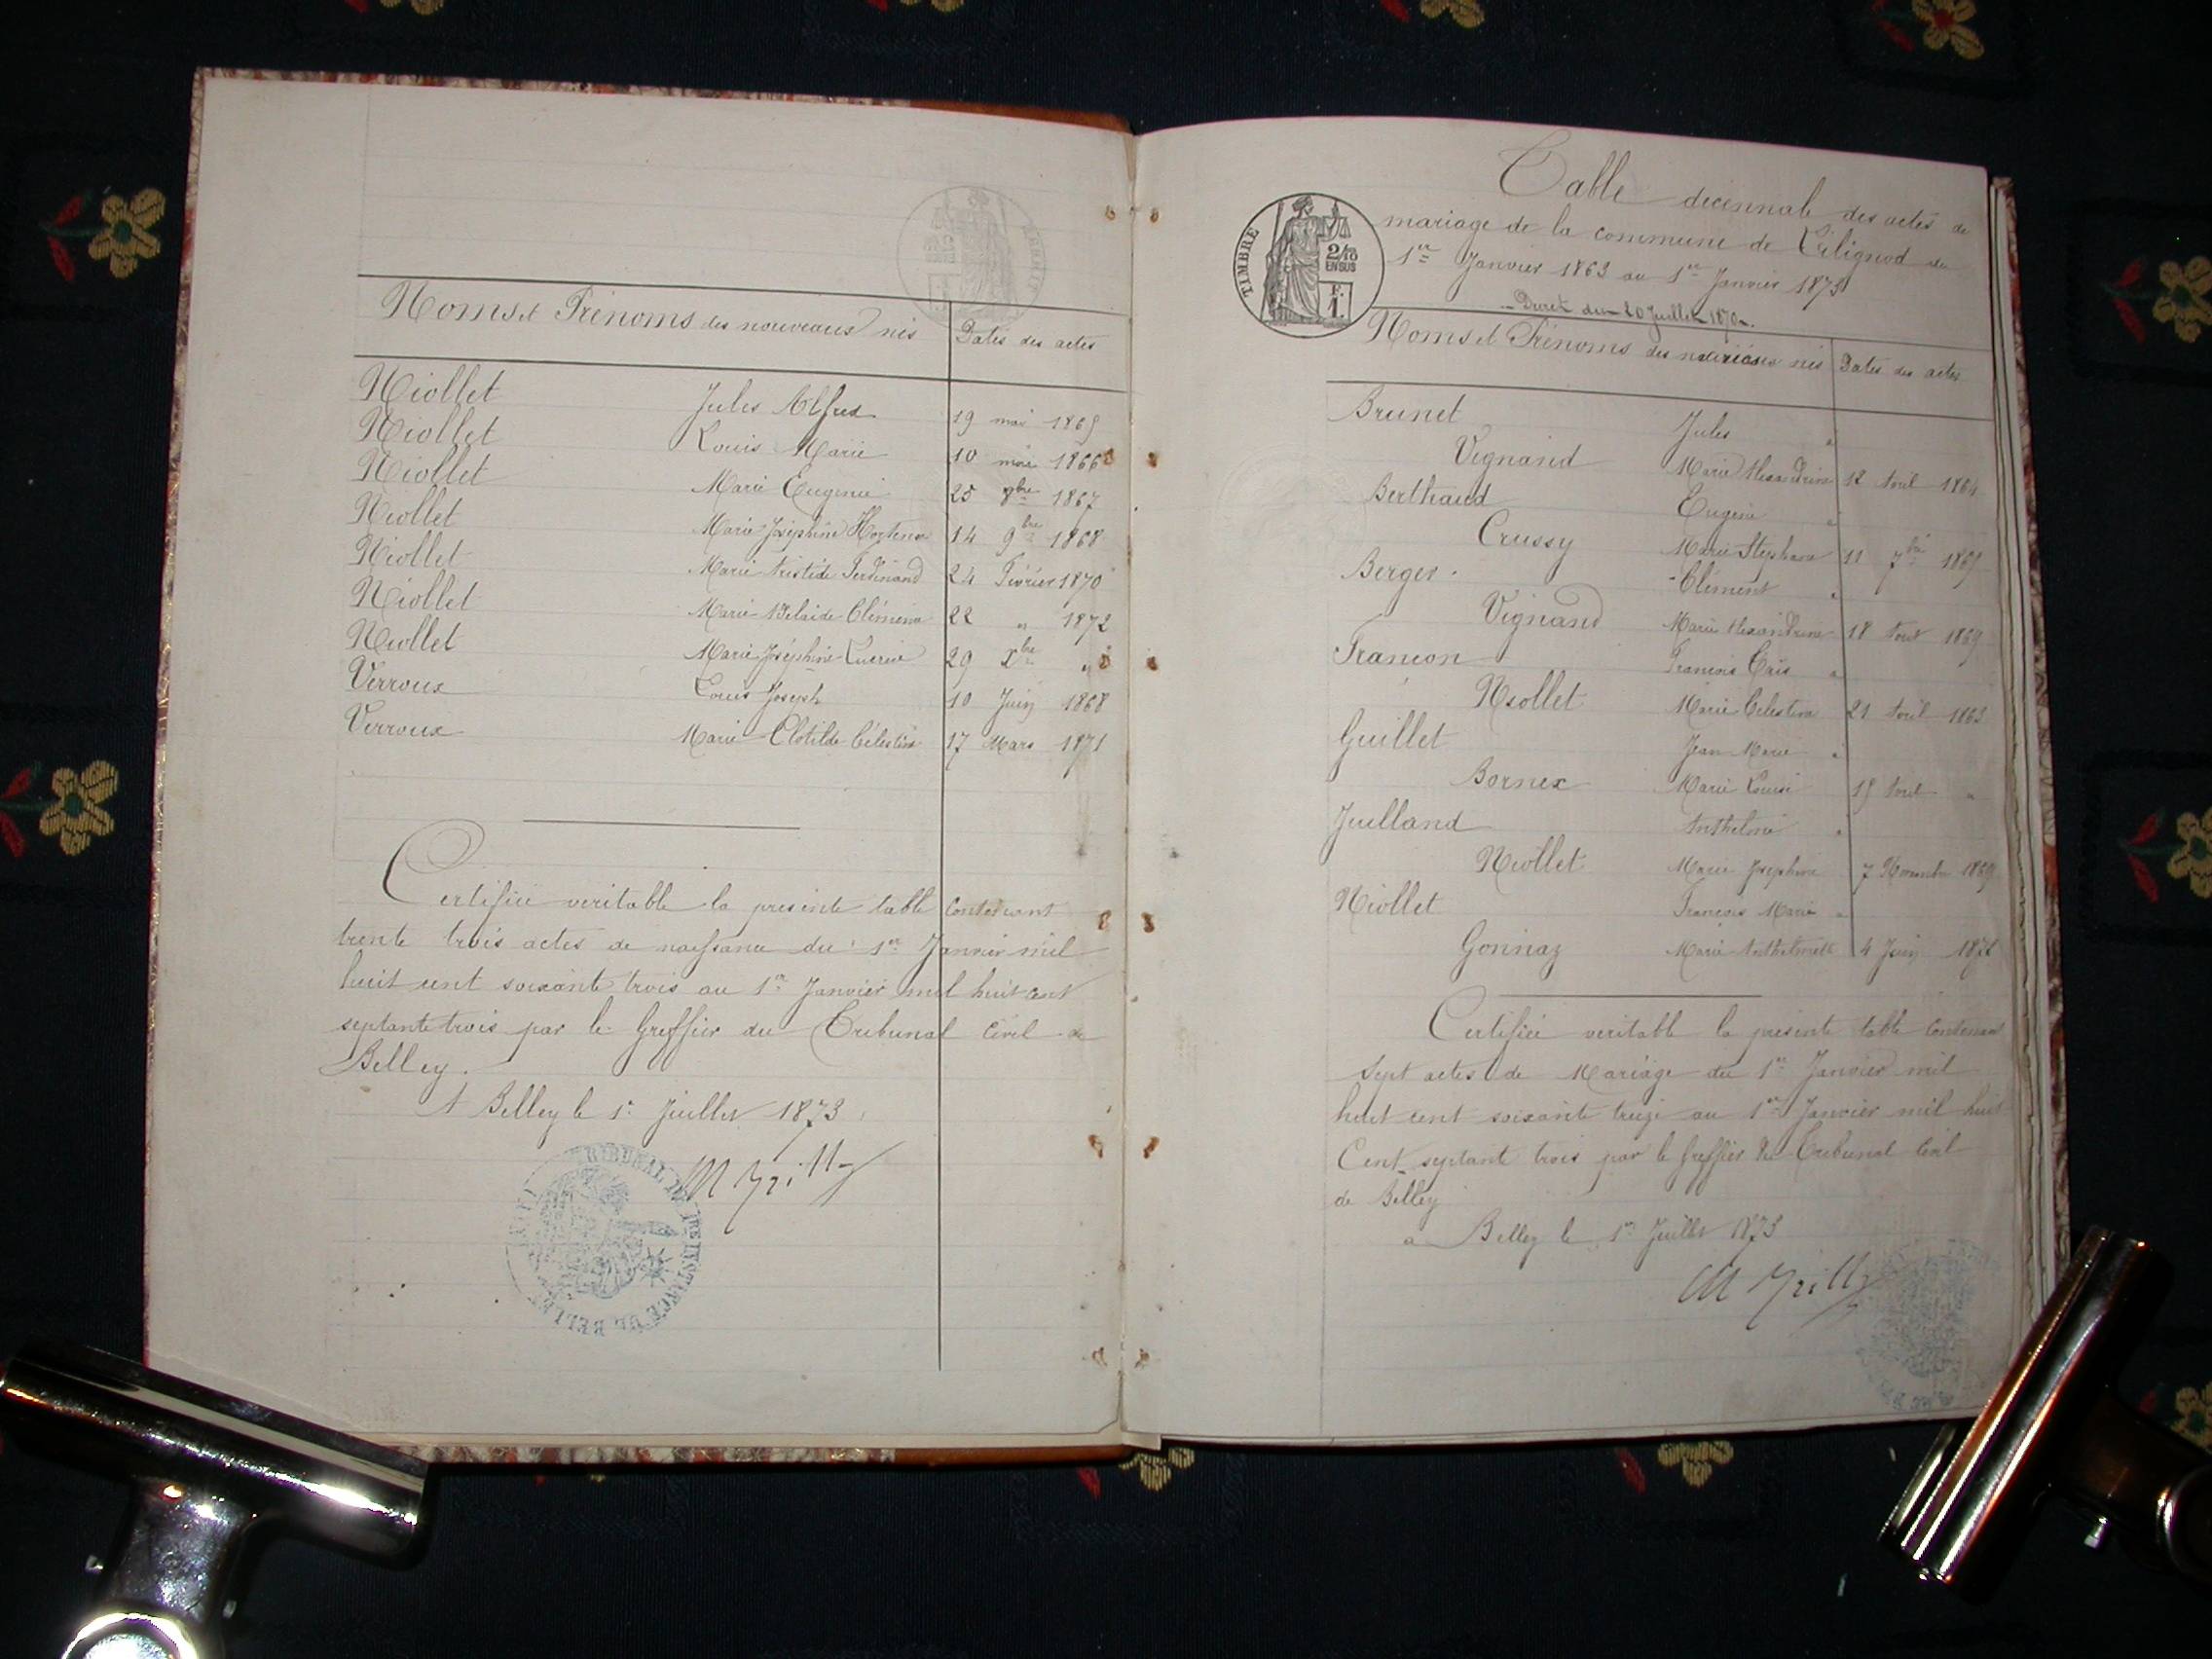 Noms et Prénoms des nouveaux nés Dates des actes
Niollet Jules Alfred 19 mai 1865
Niollet Louis Marie 10 mai 1866
Niollet Marie Eugenie 25 8bre 1867
Niollet Marie Joséphine Hortense 14 9bre 1868
Niollet Marie Aristide Ferdinand 24 Février 1870
Niollet Marie Adelaide Clémence 22 " 1872
Niollet Marie Joséphine Lucrèce 29 Xbre "
Verroux Louis Joseph 10 Juin 1868
Verroux Marie Clotilde Célestine 17 Mars 1871
Certifiée veritable la presente table contenant
trente trois actes de naissance du 1er Janvier mil
huit cent soixante trois au 1er Janvier mil huit cent
septante trois par le Greffier du Tribunal Civil de
Belley.
A Belley le 1er Juillet 1873
TRIBUNAL DE 1RE INSTANCE DE BELLEY
Table decennale des actes de
mariage de la commune de Lilignod du
1er Janvier 1863 au 1er Janvier 1873
Decret du 20 Juillet 1870
TIMBRE
2/10
EN SUS
F.
1.
Noms et Prénoms des mariés nés Dates des actes
Brunet Jules "
Vignand Marie Alexandrine 12 Avril 1864
Berthaud Eugene "
Crussy Marie Stephanie 11 7bre 1865
Berger Clément "
Vignand Marie Alexandrine 18 Aout 1869
Francon Francois "
Niollet Marie Celestine 21 Avril 1863
Guillet Jean Marie "
Bornex Marie Louise 15 Avril "
Juilland Anthelme "
Niollet Marie Joséphine 7 Novembre 1869
Niollet Francois Marie "
Gonnaz Marie Anthelmette 4 Juin 1872
Certifiée veritable la presente table contenant
Sept actes de Mariage du 1er Janvier mil
huit cent soixante treize au 1er Janvier mil huit
Cent septante trois par le Greffier du Tribunal Civil
de Belley
a Belley le 1er Juillet 1873